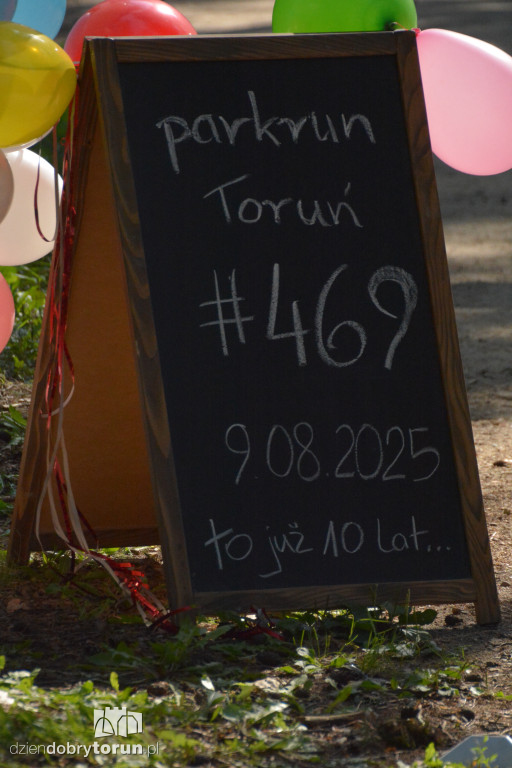 parkrun
Toruń
#469
9.08.2025
to już 10 lat...
dziendobrytorun.pl